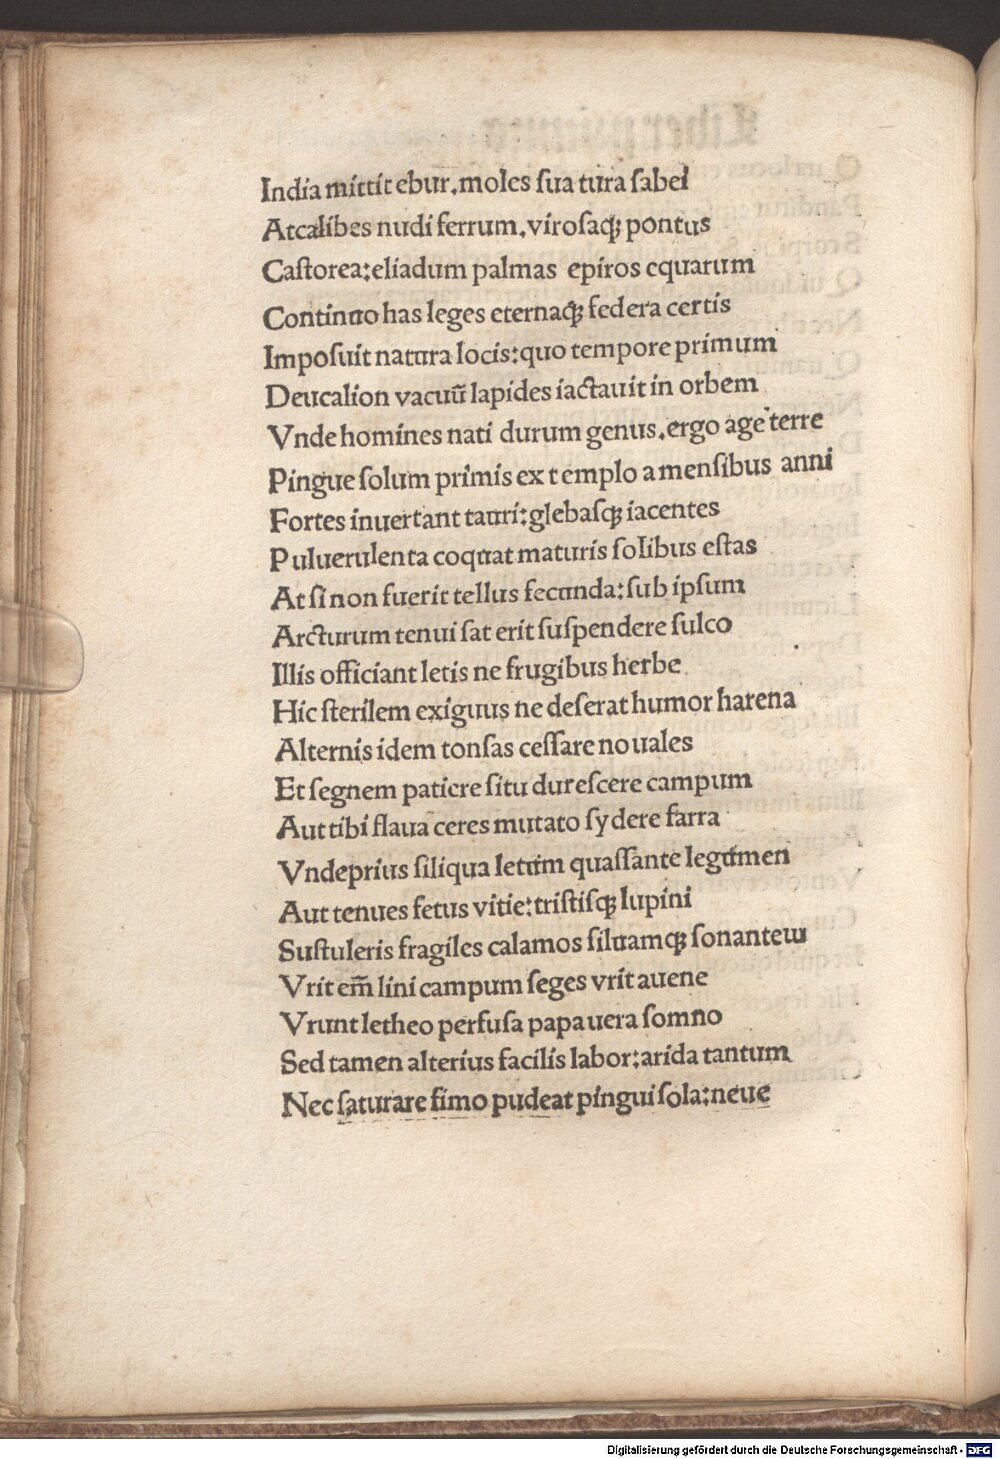 India mittit ebur.moles sua tura sabei
At calibes nudi ferrum.virosaqꝫ pontus
Castorea:eliadum palmas epiros equarum
Continuo has leges eternaqꝫ federa certis
Imposuit natura locis:quo tempore primum
Deucalion vacuū lapides iactauit in orbem
Vnde homines nati durum genus.ergo age terre
Pingue solum primis extemplo a mensibus anni
Fortes inuertant tauri:glebasqꝫ iacentes
Puluerulenta coquat maturis solibus estas
At si non fuerit tellus fecunda:sub ipsum
Arcturum tenui sat erit suspendere sulco
Illis officiant letis ne frugibus herbe
Hic sterilem exiguus ne deserat humor harena
Alternis idem tonsas cessare nouales
Et segnem patiere situ durescere campum
Aut tibi flaua ceres mutato sydere farra
Vnde prius siliqua letum quassante legumen
Aut tenues fetus vitie:tristisqꝫ lupini
Sustuleris fragiles calamos siluamqꝫ sonantem
Vrit em̄ lini campum seges vrit auene
Vrunt letheo perfusa papauera somno
Sed tamen alterius facilis labor:arida tantum
Nec saturare fimo pudeat pingui sola:neue
Digitalisierung gefördert durch die Deutsche Forschungsgemeinschaft - DFG